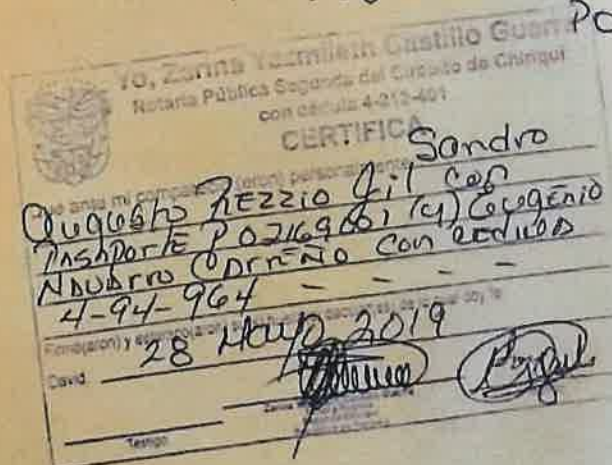 PO
Yo, Zarina Yazmileth Castillo Guerra
Notaria Pública Segunda del Circuito de Chiriquí
con cédula 4-212-401
CERTIFICA
Que ante mi compareció(eron) personalmente Sandro
Augusto Rezzio Gil con
Pasaporte
Navarro Carreño con cedula
4-94-964 - - - -
Firmó(aron)
David 28 Mayo 2019
Testigo